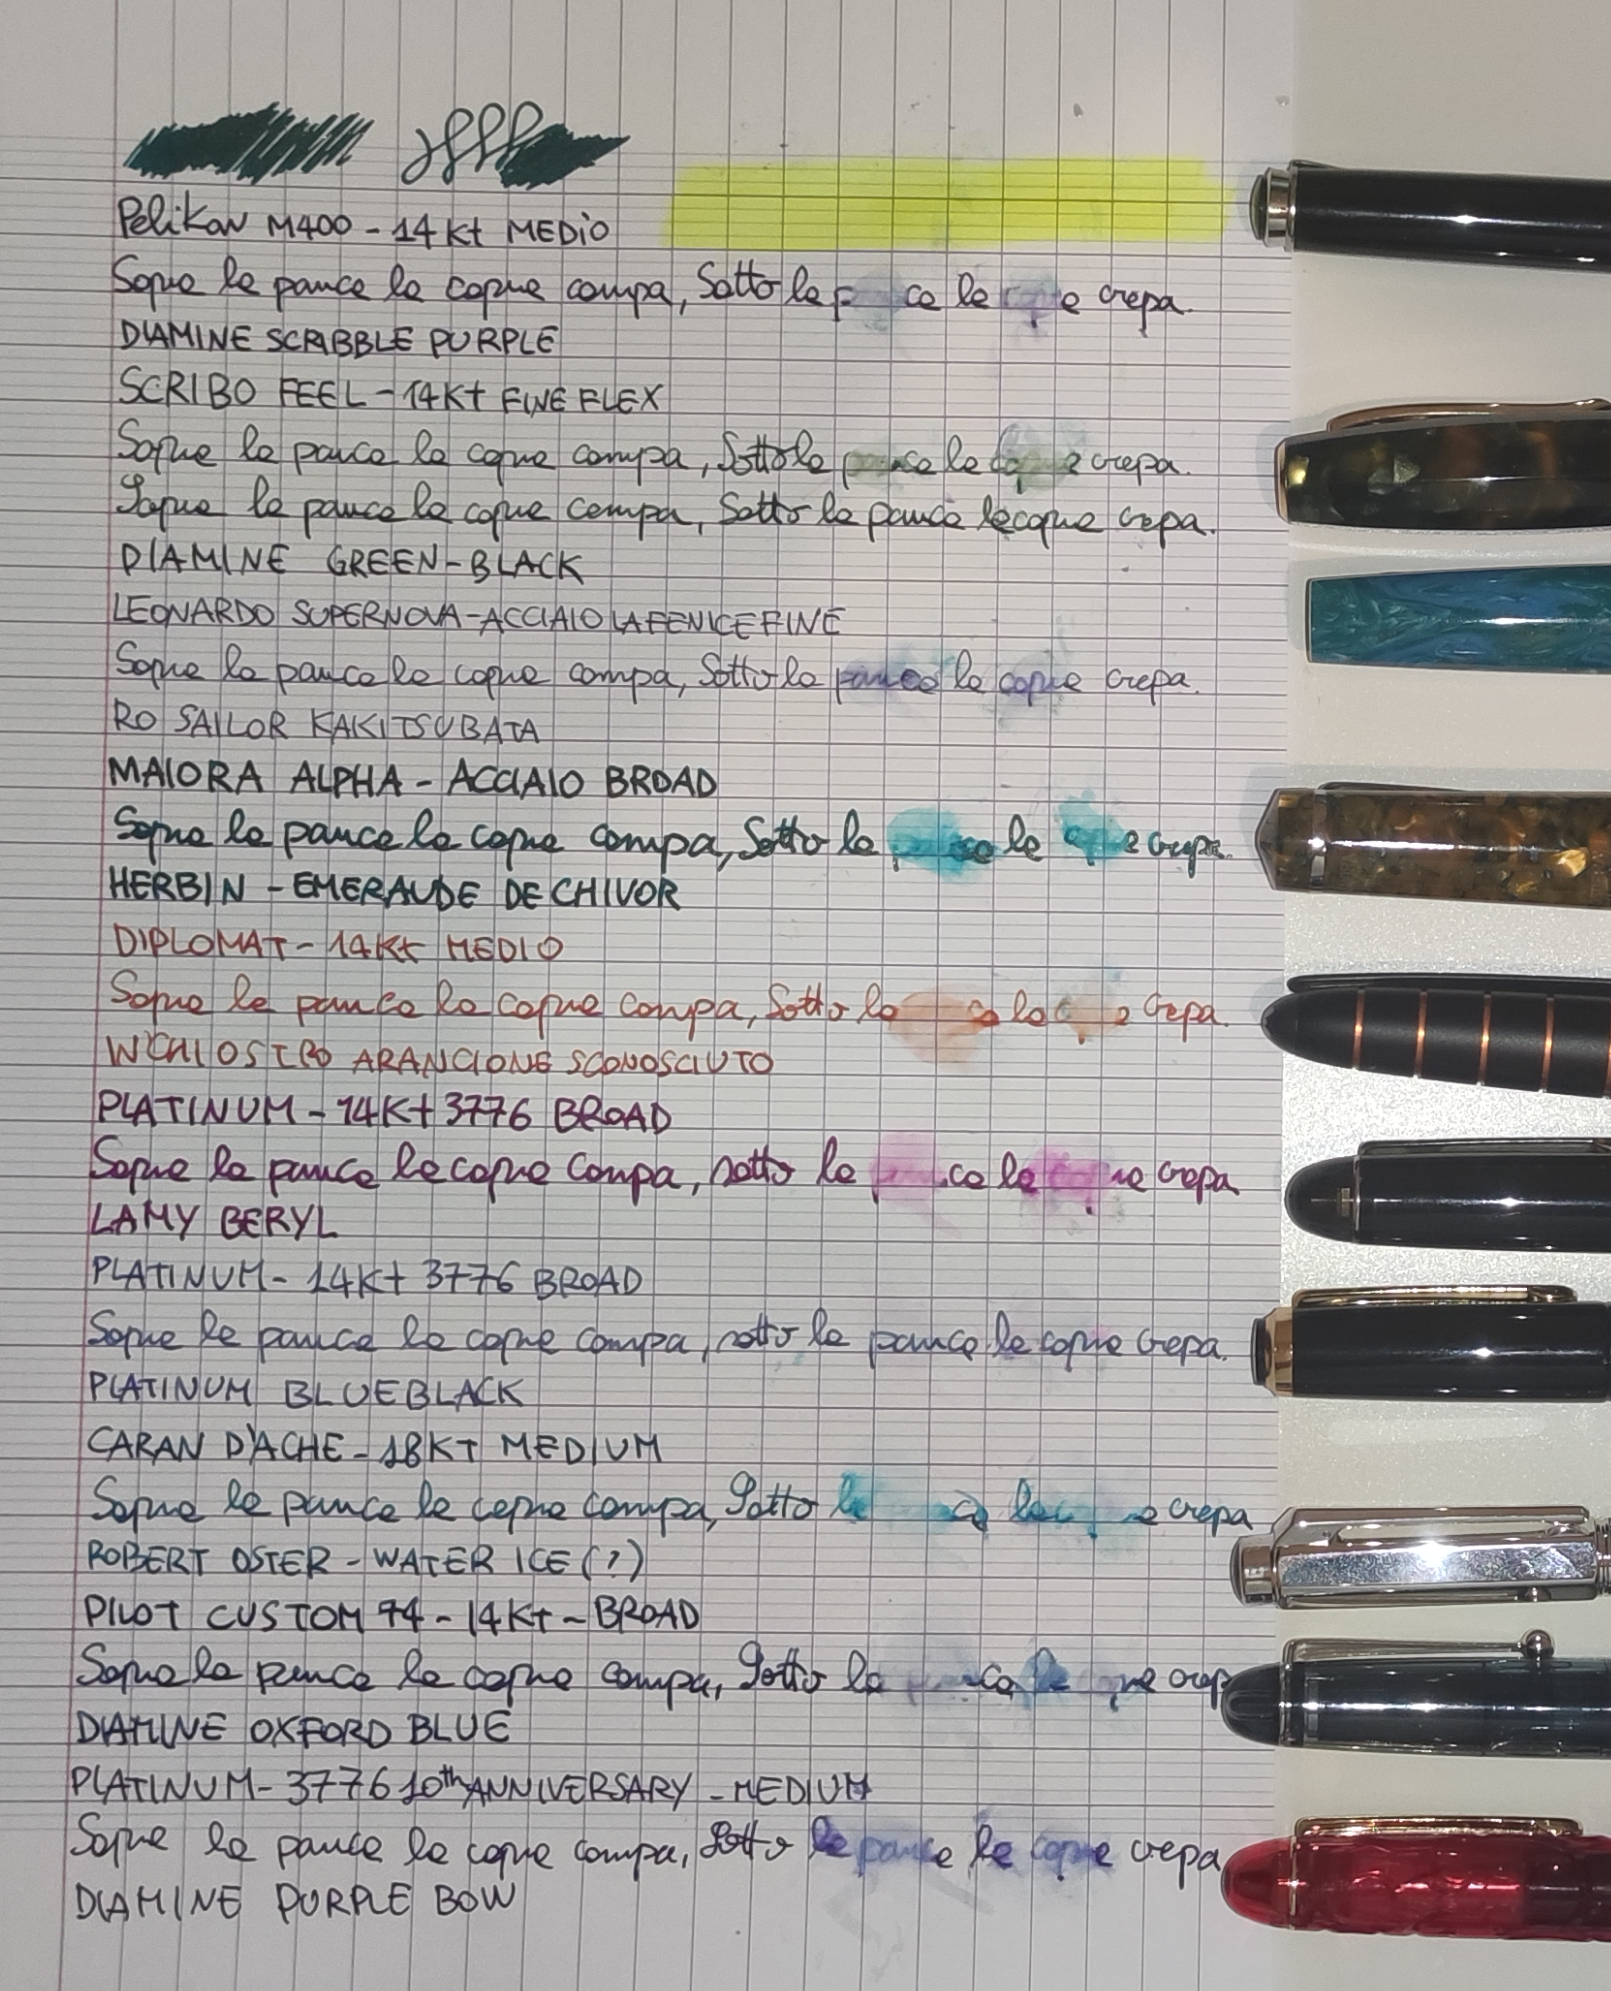 Pelikan M400 - 14Kt MEDIO
Sopra la panca la capra campa, Sotto la panca la capra crepa.
DIAMINE SCRIBBLE PURPLE
SCRIBO FEEL - 14Kt FINE FLEX
Sopra la panca la capra campa, Sotto la panca la capra crepa.
Sopra la panca la capra campa, Sotto la panca la capra crepa.
DIAMINE GREEN-BLACK
LEONARDO SUPERNOVA - ACCIAIO LA FENICE FINE
Sopra la panca la capra campa, Sotto la panca la capra crepa.
RO SAILOR KAKITSUBATA
MAIORA ALPHA - ACCIAIO BROAD
Sopra la panca la capra campa, Sotto la panca la capra crepa.
HERBIN - EMERAUDE DE CHIVOR
DIPLOMAT - 14Kt MEDIO
Sopra la panca la capra campa, Sotto la panca la capra crepa.
INCHIOSTRO ARANCIONE SCONOSCIUTO
PLATINUM - 14Kt 3776 BROAD
Sopra la panca la capra campa, sotto la panca la capra crepa
LAMY BERYL
PLATINUM - 14Kt 3776 BROAD
Sopra la panca la capra campa, sotto la panca la capra crepa.
PLATINUM BLUEBLACK
CARAN D'ACHE - 18KT MEDIUM
Sopra la panca la capra campa, Sotto la panca la capra crepa
ROBERT OSTER - WATER ICE (?)
PILOT CUSTOM 74 - 14KT - BROAD
Sopra la panca la capra campa, Sotto la panca la capra crep
DIAMINE OXFORD BLUE
PLATINUM - 3776 10th ANNIVERSARY - MEDIUM
Sopra la panca la capra campa, Sotto la panca la capra crepa
DIAMINE PURPLE BOW